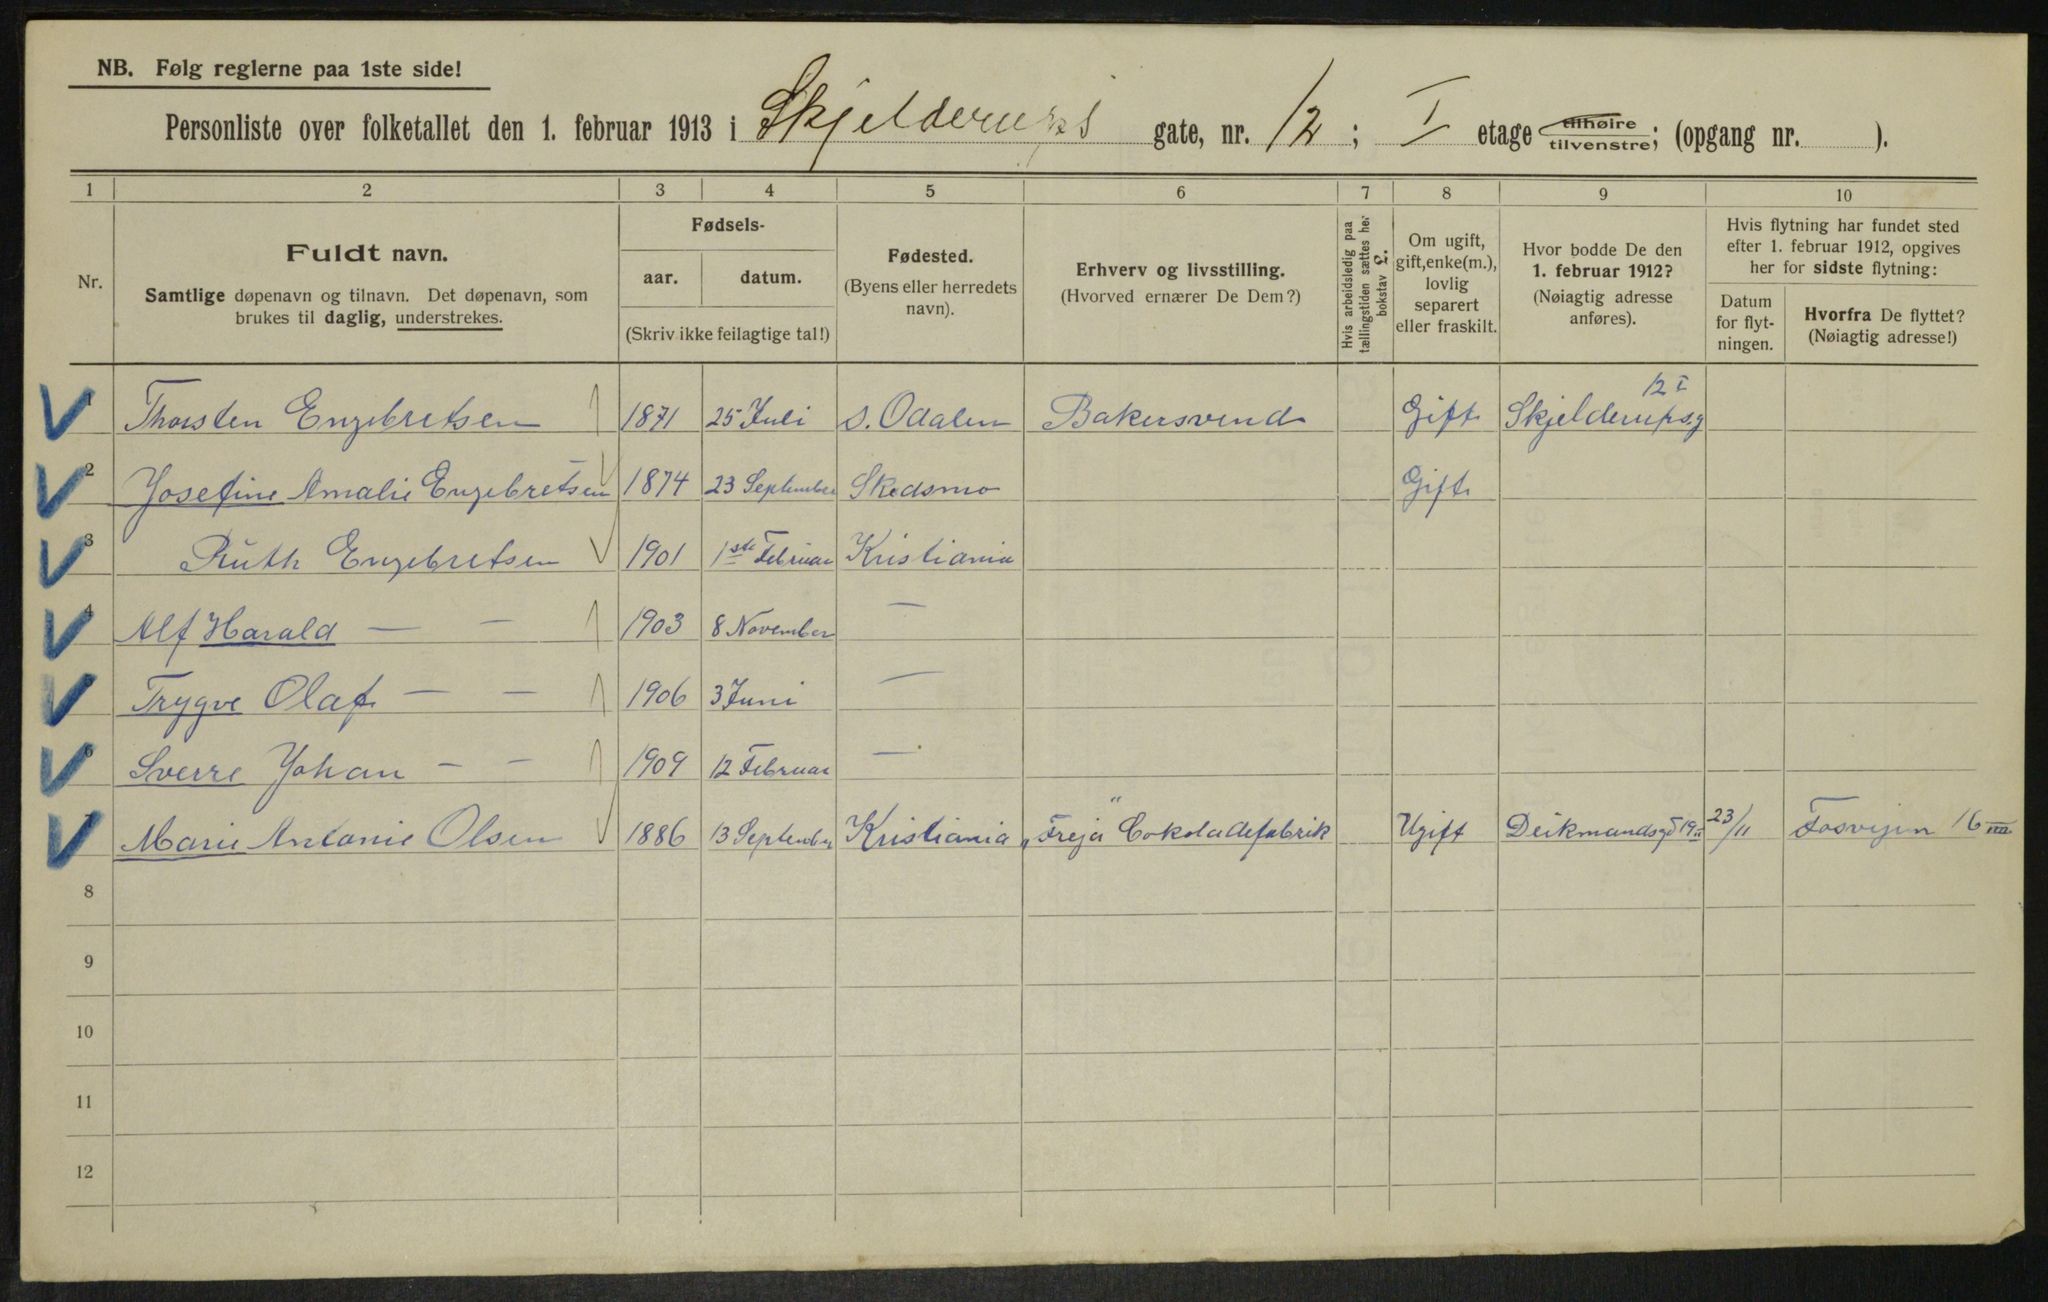 NB. Følg reglerne paa 1ste side!
Personliste over folketallet den 1. februar 1913 i Skjelderups gate, nr. 12; I etage tilhøire tilvenstre; (opgang nr. ).
1 2 3 4 5 6 7 8 9 10
Nr.
Fuldt navn.
Samtlige døpenavn og tilnavn. Det døpenavn, som
brukes til daglig, understrekes.
Fødsels-
aar. datum.
(Skriv ikke feilagtige tal!)
Fødested.
(Byens eller herredets
navn).
Erhverv og livsstilling.
(Hvorved ernærer De Dem?)
Hvis arbeidsledig paa
tællingstiden sættes her
bokstav L.
Om ugift,
gift, enke(m.),
lovlig
separert
eller fraskilt.
Hvor bodde De den
1. februar 1912?
(Nøiagtig adresse
anføres).
Hvis flytning har fundet sted
efter 1. februar 1912, opgives
her for sidste flytning:
Datum
for flyt-
ningen.
Hvorfra De flyttet?
(Nøiagtig adresse!)
1 Thorsten Engebretsen 1871 25 Juli S. Odalen Bakersvend Gift Skjelderupsg 12 I
2 Josefine Amalie Engebretsen 1874 23 September Skedsmo Gift
3 Ruth Engebretsen 1901 1ste Februar Kristiania
4 Alf Harald — — 1903 8 November —
Trygve Olaf — — 1906 3 Juni —
6 Sverre Johan — — 1909 12 Februar —
7 Marie Antonie Olsen 1886 13 September Kristiania „Freja“ Cokoladefabrik Ugift Deikmandsgd 19 II 23/11 16
8
9
10
11
12